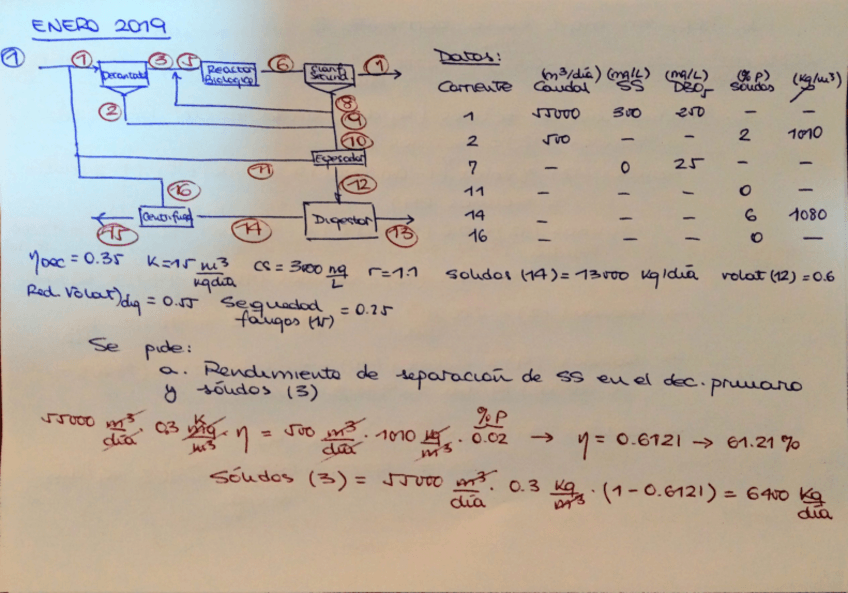 ENERO 2019
1 1 Decantad 3 5 Reactor Biologico 6 Clarif Secund 1
2 8 9 10
11 Espesador
12
16
15 Centrifuga 14 Digestor 13
Datos:
Corriente (m³/día) Caudal (mg/L) SS (mg/L) DBO₅ (% P) Sólidos (kg/m³) ρ
1 55000 300 250 – –
2 500 – – 2 1010
7 – 0 25 – –
11 – – – 0 –
14 – – – 6 1080
16 – – – 0 –
ηDEC = 0.35 K=15 m³/kg día CS = 3000 mg/L r=1.1 Solidos (14) = 13000 kg/día volat (12) = 0.6
Red. Volat)dig = 0.55 Sequedad fangos (15) = 0.25
Se pide:
a. Rendimiento de separación de SS en el dec. primario
y sólidos (3)
55000 m³/día · 0.3 kg/m³ · η = 500 m³/día · 1010 kg/m³ · 0.02 %P → η = 0.6121 → 61.21 %
Sólidos (3) = 55000 m³/día · 0.3 kg/m³ · (1 - 0.6121) = 6400 kg/día